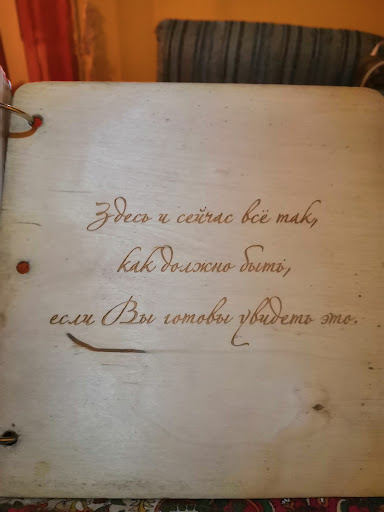 Здесь и сейчас всё так,
как должно быть,
если Вы готовы увидеть это.